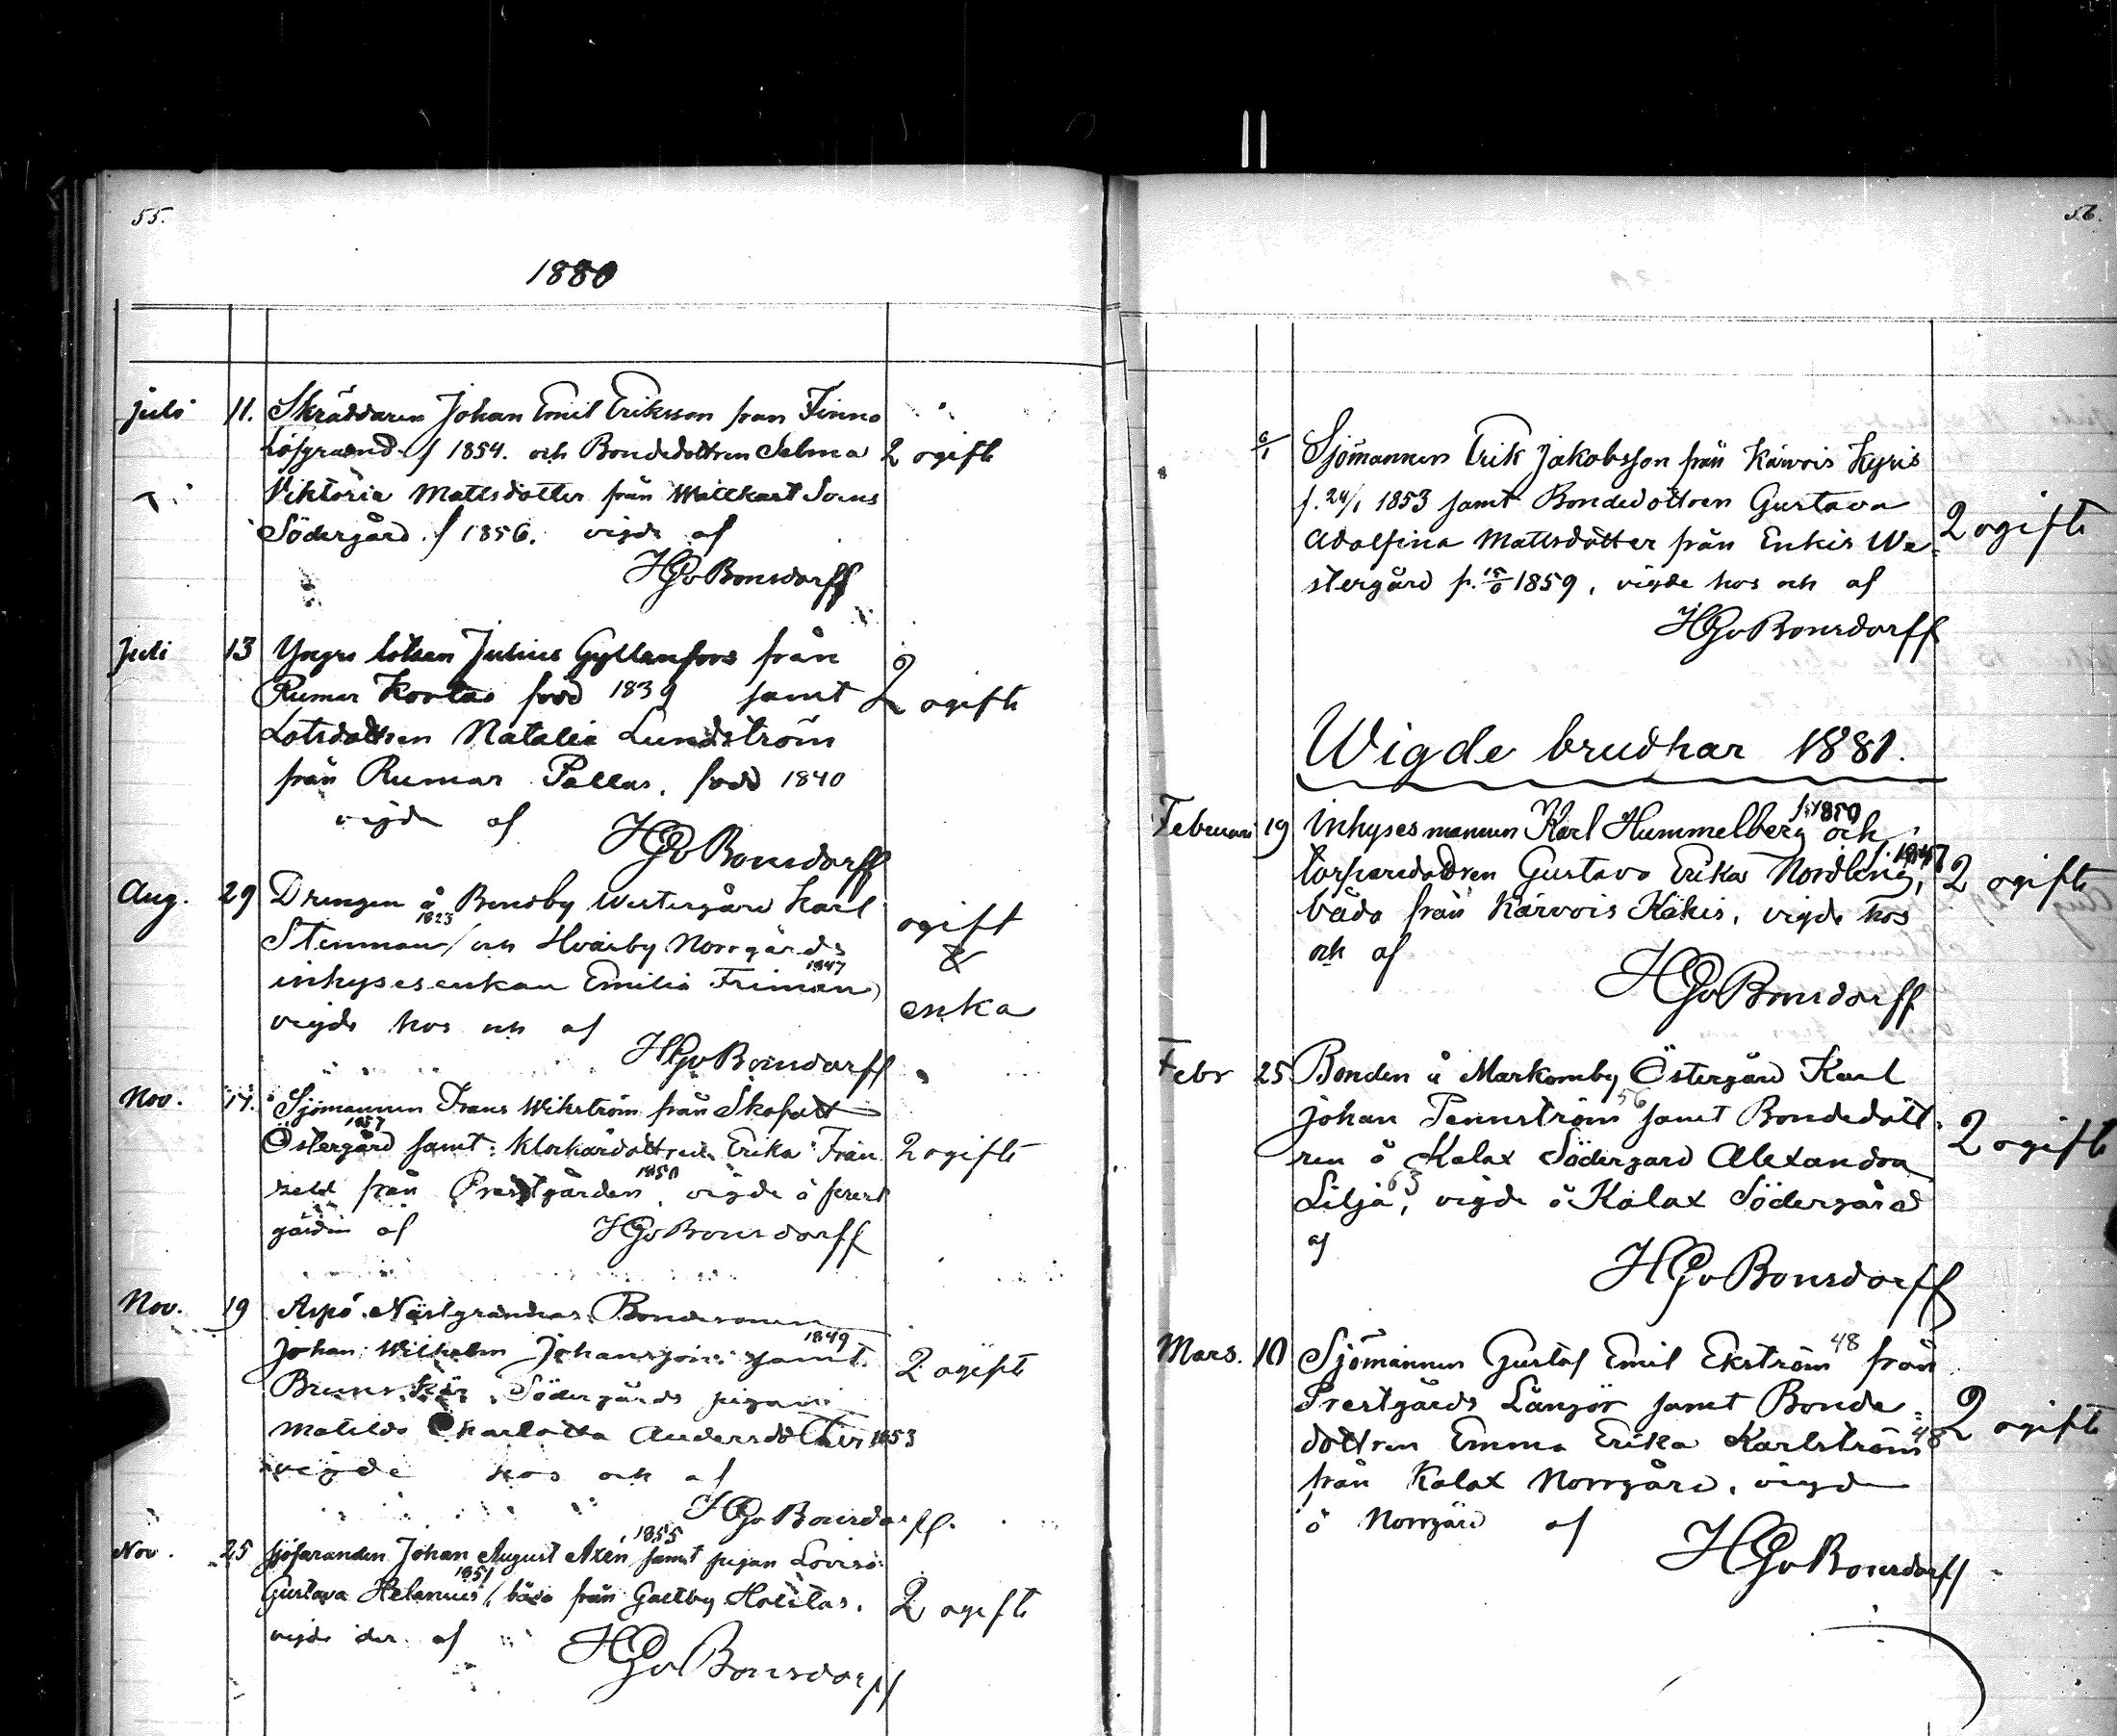 55.
1880
juli 11. Skräddaren Johan Emil Eriksson från Finno
Löfgrund f 1854. och Bondedottren Selma 2 ogifte
Viktoria Mattsdotter från Wattkast
Södergård f 1856. vigde af
HGvBonsdorff
Juli 13 Yngre lotsen Julius Gyllenfors från
Rumar Kortas född 1839 samt 2 ogifte
Lotsdottren Natalia Lundström
från Rumar Pellas, född 1840
vigde af
HGvBonsdorff
Aug. 29 Drengen å Bensby Westergård Karl ogift
Stenman 1823 och Hvarby Norrgårds &
inhysesenkan Emilia Friman 1847 enka
vigde hos och af
HGvBonsdorff
Nov. 14. Sjömannen Frans Wikström från Skofatt
Östergård 1857 samt Klockardottren Erika Fran 2 ogifte
från Prestgården 1850, vigde å prest
gården af HGvBonsdorff
Nov. 19 Aspö Nästgrannas Bondesonen
Johan Wilhelm Johansson 1849 samt 2 ogifte
Brunskär Södergårds pigan
Matilda Charlotta Andersdotter 1853
vigde hos och af
HGvBonsdorff.
Nov. 25 Sjöfaranden Johan August Axén 1855 samt pigan Lovisa
Gustava Helenius 1851, båda från Galtby 2 ogifte
vigde der af
HGvBonsdorff
56.
6/1 Sjömannen Erik Jakobsson från Kärvois Kyris
f. 24/1 1853 samt Bondedottren Gustava 2 ogifte
Adolfina Mattsdotter från Enkis We-
stergård f. 1859, vigde hos och af
HGvBonsdorff
Wigde brudpar 1881.
Februari 19 Inhysesmannen Karl Hummelberg f. 1850 och
torparedottren Gustava Erika Nordling, f. 1847 2 ogifte
båda från Kärvois Käkis, vigde hos
och af
HGvBonsdorff
Febr 25 Bonden å Markomby Östergård Karl
Johan Pennström 56 samt Bondedött- 2 ogifte
ren å Kalax Södergård Alexandra
Lilja 63, vigde å Kalax Södergård
af
HGvBonsdorff
Mars. 10 Sjömannen Gustaf Emil Ekström 48 från
Prestgårds Långör samt Bonde= 2 ogifte
dottren Emma Erika Karlström 48
från Kalax Norrgård, vigde
å Norrgård af
HGvBonsdorff